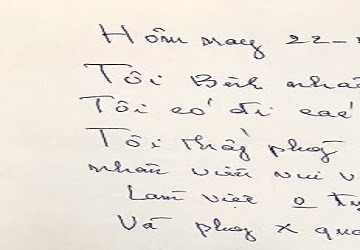 Hôm nay 22-
Tôi Bệnh nhâ
Tôi có đi các
Tôi thấy phòng
nhân viên vui v
Làm việc
Và phòng X qua